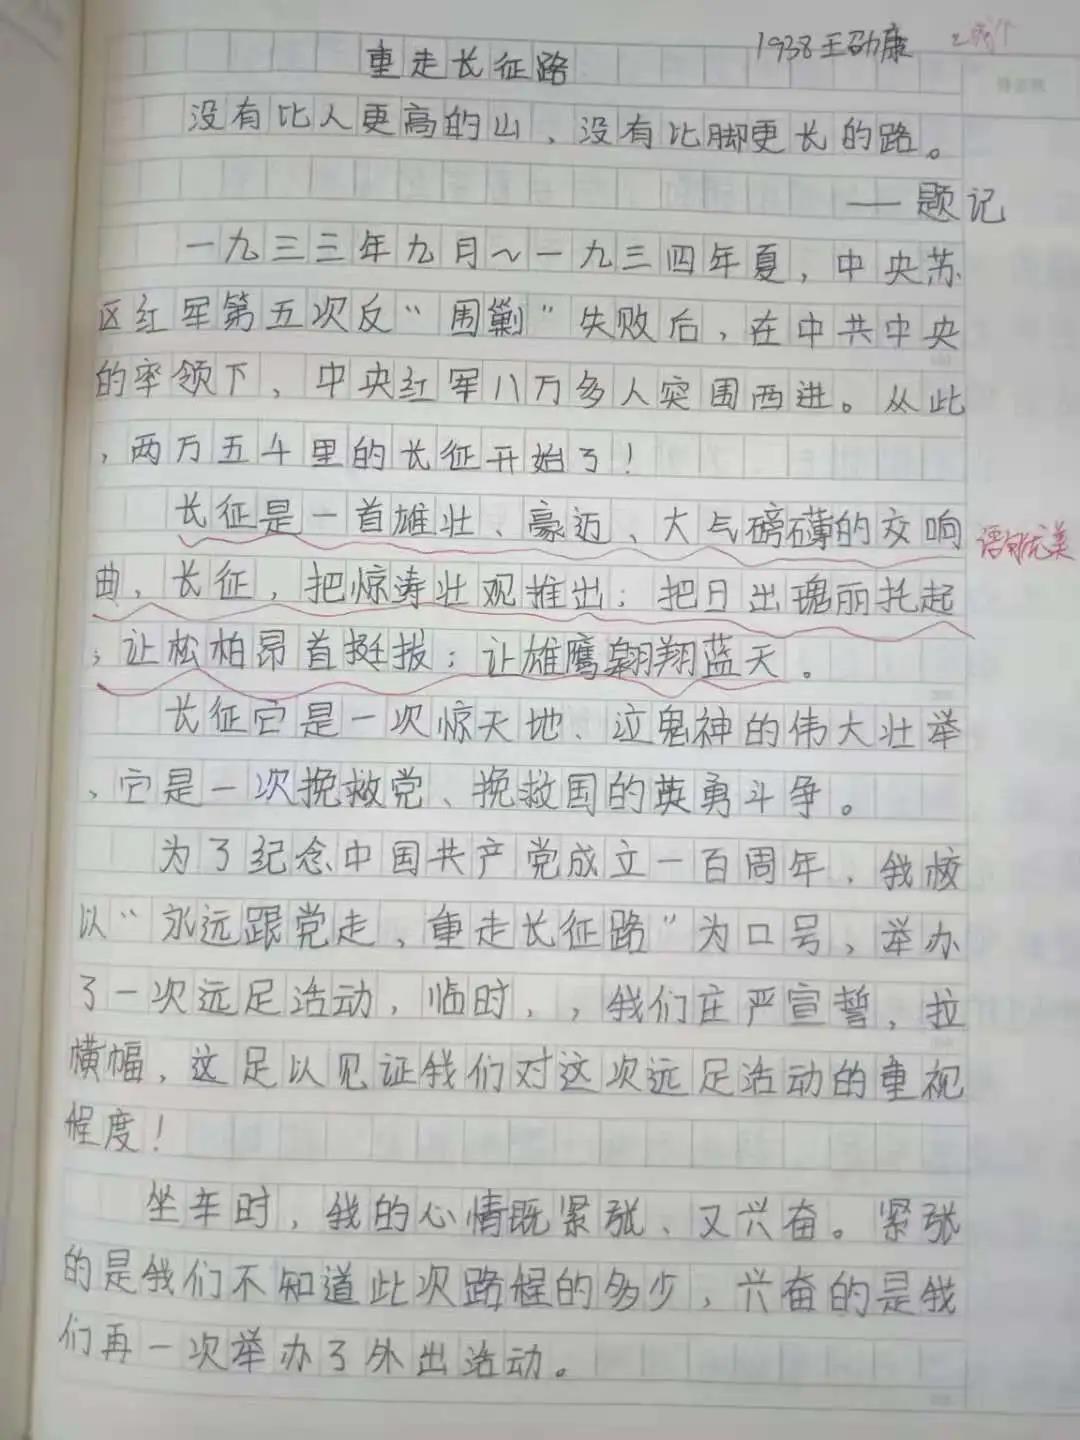 重走长征路 1938 王劭康
没有比人更高的山、没有比脚更长的路。
——题记
一九三三年九月~一九三四年夏,中央苏
区红军第五次反“围剿”失败后,在中共中央
的率领下、中央红军八万多人突围西进。从此
,两万五千里的长征开始了!
长征是一首雄壮、豪迈、大气磅礴的交响 语句优美
曲、长征,把惊涛壮观推出;把日出瑰丽托起
;让松柏昂首挺拔;让雄鹰翱翔蓝天。
长征它是一次惊天地、泣鬼神的伟大壮举
、它是一次挽救党、挽救国的英勇斗争。
为了纪念中国共产党成立一百周年,我校
以“永远跟党走、重走长征路”为口号,举办
了一次远足活动,临时,,我们庄严宣誓,拉
横幅,这足以见证我们对这次远足活动的重视
程度!
坐车时,我的心情既紧张、又兴奋。紧张
的是我们不知道此次路程的多少,兴奋的是我
们再一次举办了外出活动。